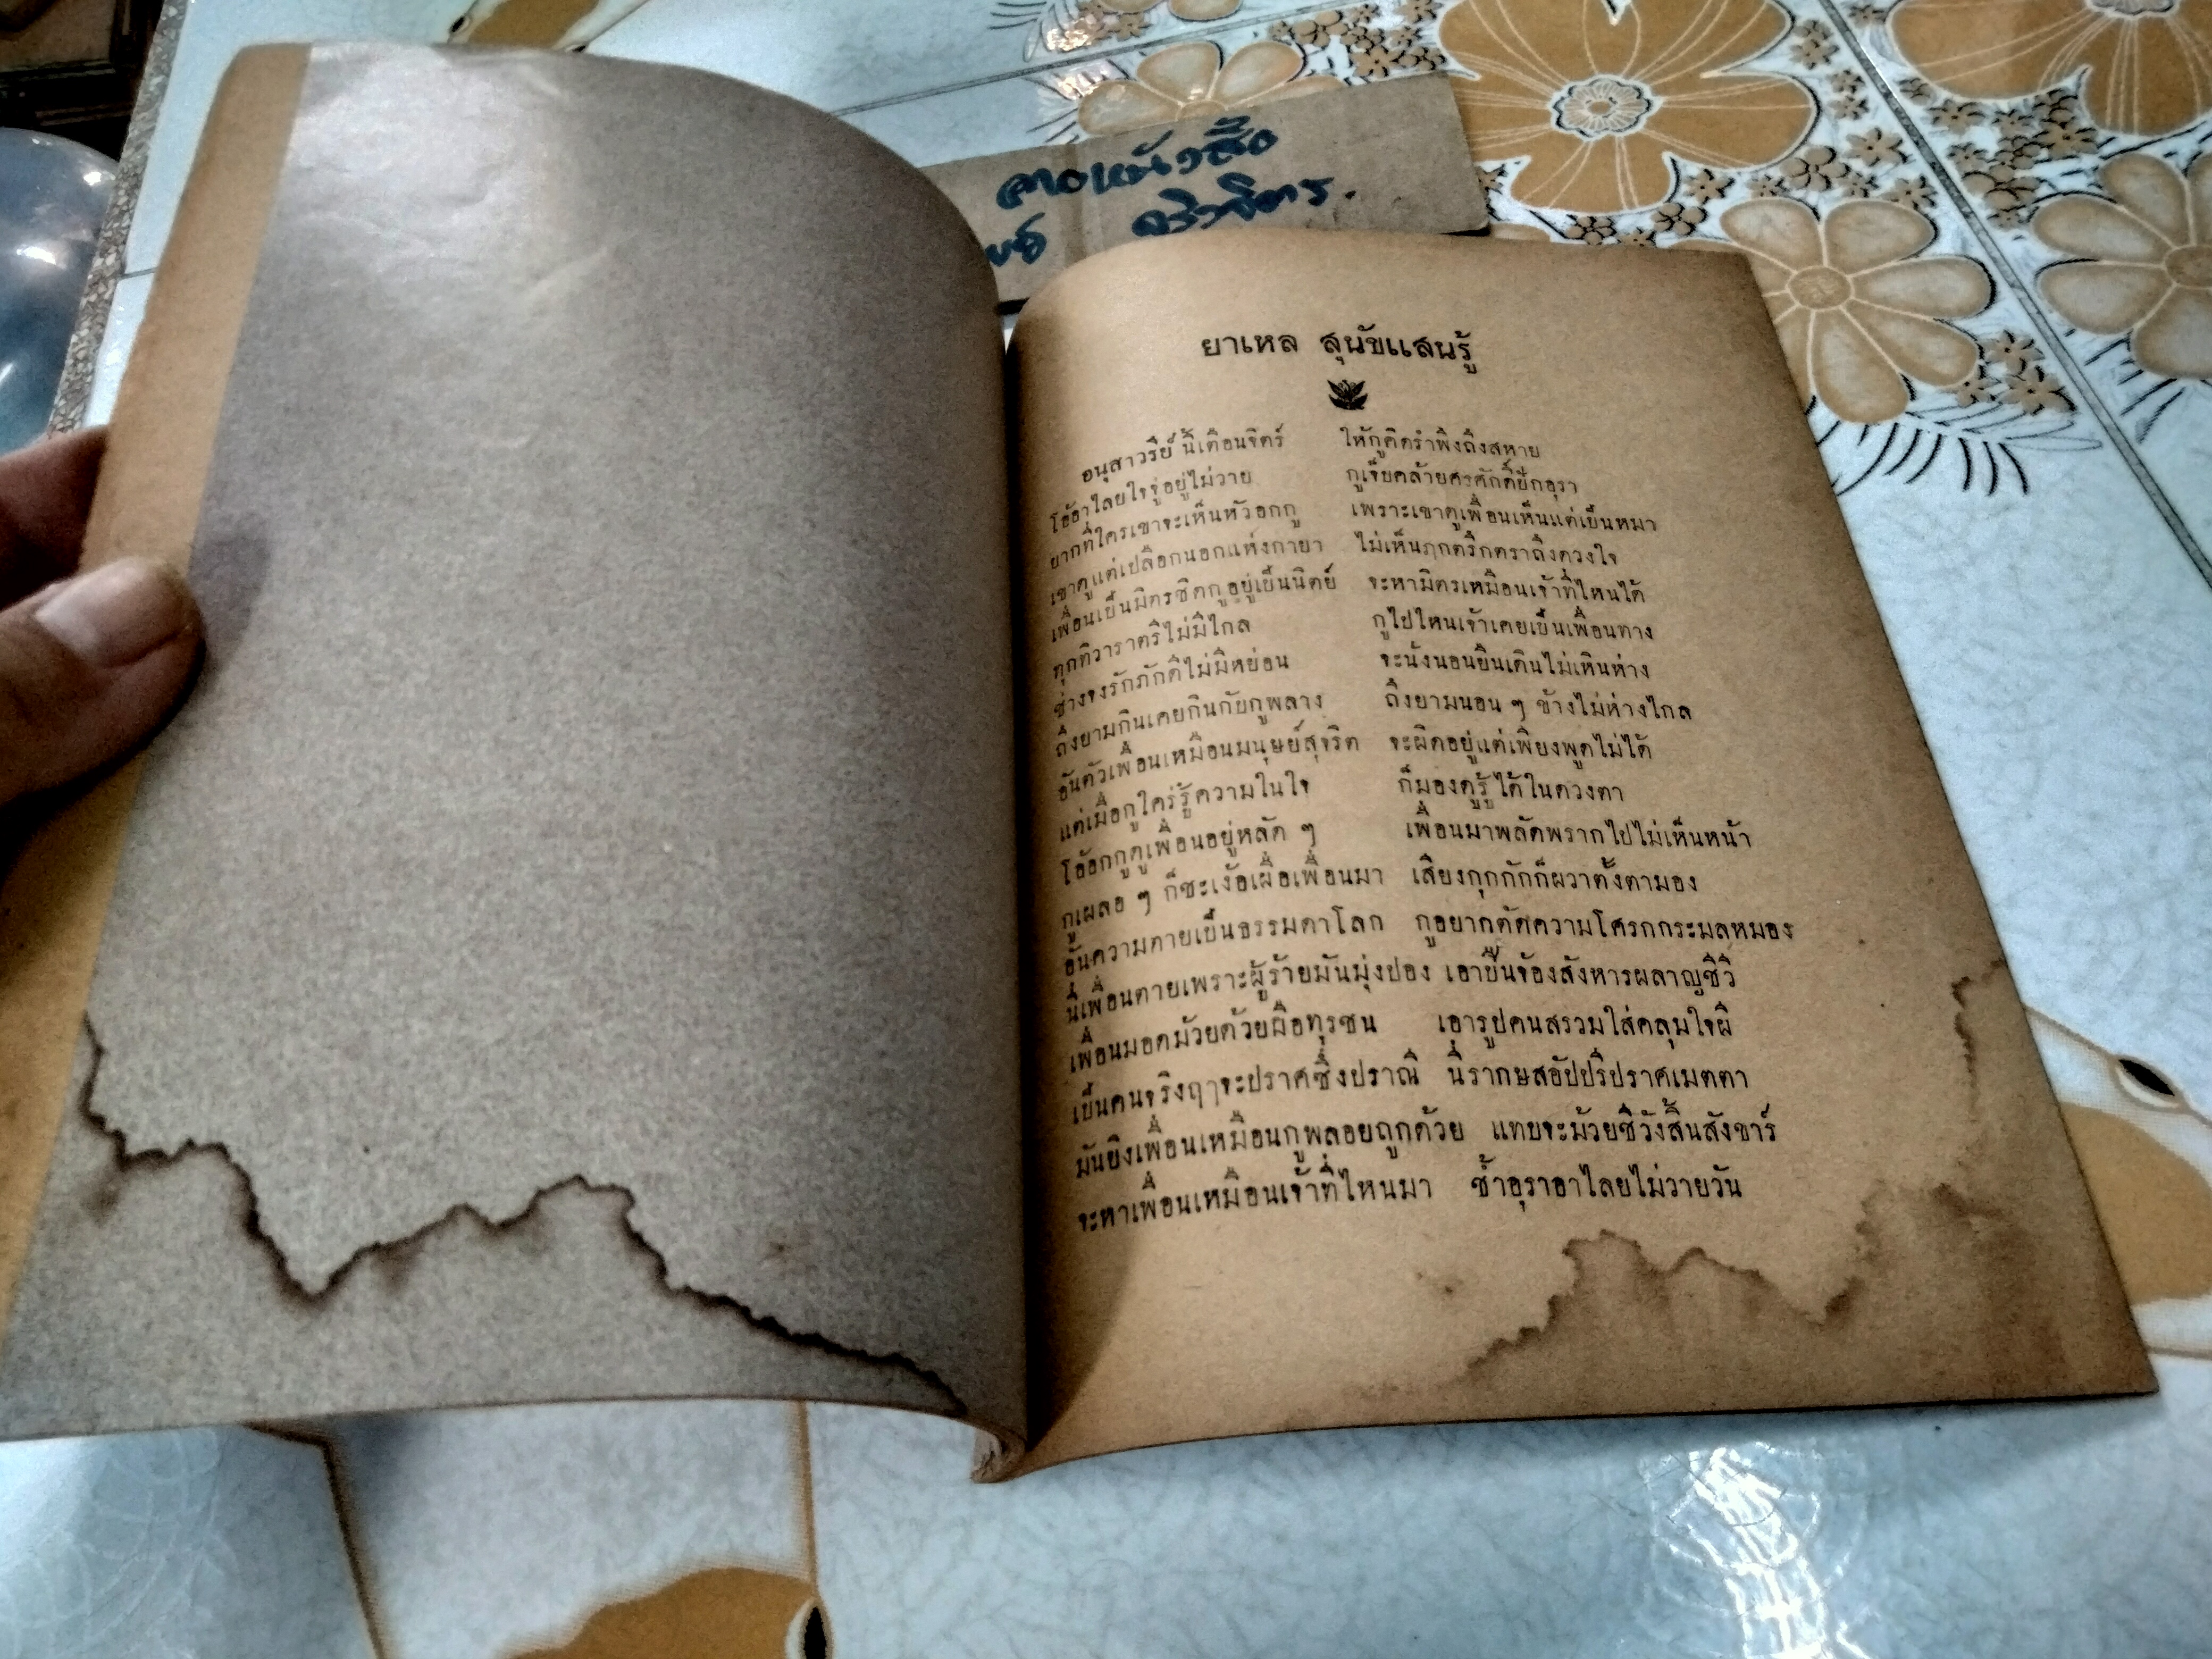 ลายหนังสือ
ยาเหล สุนัขแสนรู้
อนุสาวรีย์ นี้เตือนจิตร์ ให้กูคิดรำพึงถึงสหาย
โอ้อาไลยใจจู่อยู่ไม่วาย กูเจ็บคล้ายศรศักดิ์ปักอุรา
ยากที่ใครเขาจะเห็นหัวอกกู เพราะเขาดูเพื่อนเห็นแต่เป็นหมา
เขาดูแต่เปลือกนอกแห่งกายา ไม่เห็นฦกตรึกตราถึงดวงใจ
เพื่อนเป็นมิตรชิดกูอยู่เป็นนิตย์ จะหามิตรเหมือนเจ้าที่ไหนได้
ทุกทิวาราตรีไม่มีไกล กูไปไหนเจ้าเคยเป็นเพื่อนทาง
ช่างจงรักภักดีไม่มีหย่อน จะนั่งนอนยืนเดินไม่เหินห่าง
ถึงยามกินเคยกินกับกูพลาง ถึงยามนอน ๆ ข้างไม่ห่างไกล
อันตัวเพื่อนเหมือนมนุษย์สุจริต จะผิดอยู่แต่เพียงพูดไม่ได้
แต่เมื่อกูใคร่รู้ความในใจ ก็มองดูรู้ได้ในดวงตา
โอ้อกกูดูเพื่อนอยู่หลัด ๆ เพื่อนมาพลัดพรากไปไม่เห็นหน้า
กูเผลอ ๆ ก็ชะเง้อเผื่อเพื่อนมา เสียงกุกกักก็ผวาตั้งตามอง
อันความตายเป็นธรรมดาโลก กูอยากตัดความโศรกกระมลหมอง
นี่เพื่อนตายเพราะผู้ร้ายมันมุ่งปอง เอาปืนจ้องสังหารผลาญชีวี
เพื่อนมอดม้วยด้วยมือทุรชน เอารูปคนสรวมใส่คลุมใจผี
เป็นคนจริงฤๅจะปราศซึ่งปราณี นี่รากษสอัปปรีปราศเมตตา
มันยิงเพื่อนเหมือนกูพลอยถูกด้วย แทบจะม้วยชีวังสิ้นสังขาร์
จะหาเพื่อนเหมือนเจ้าที่ไหนมา ช้ำอุราอาไลยไม่วายวัน